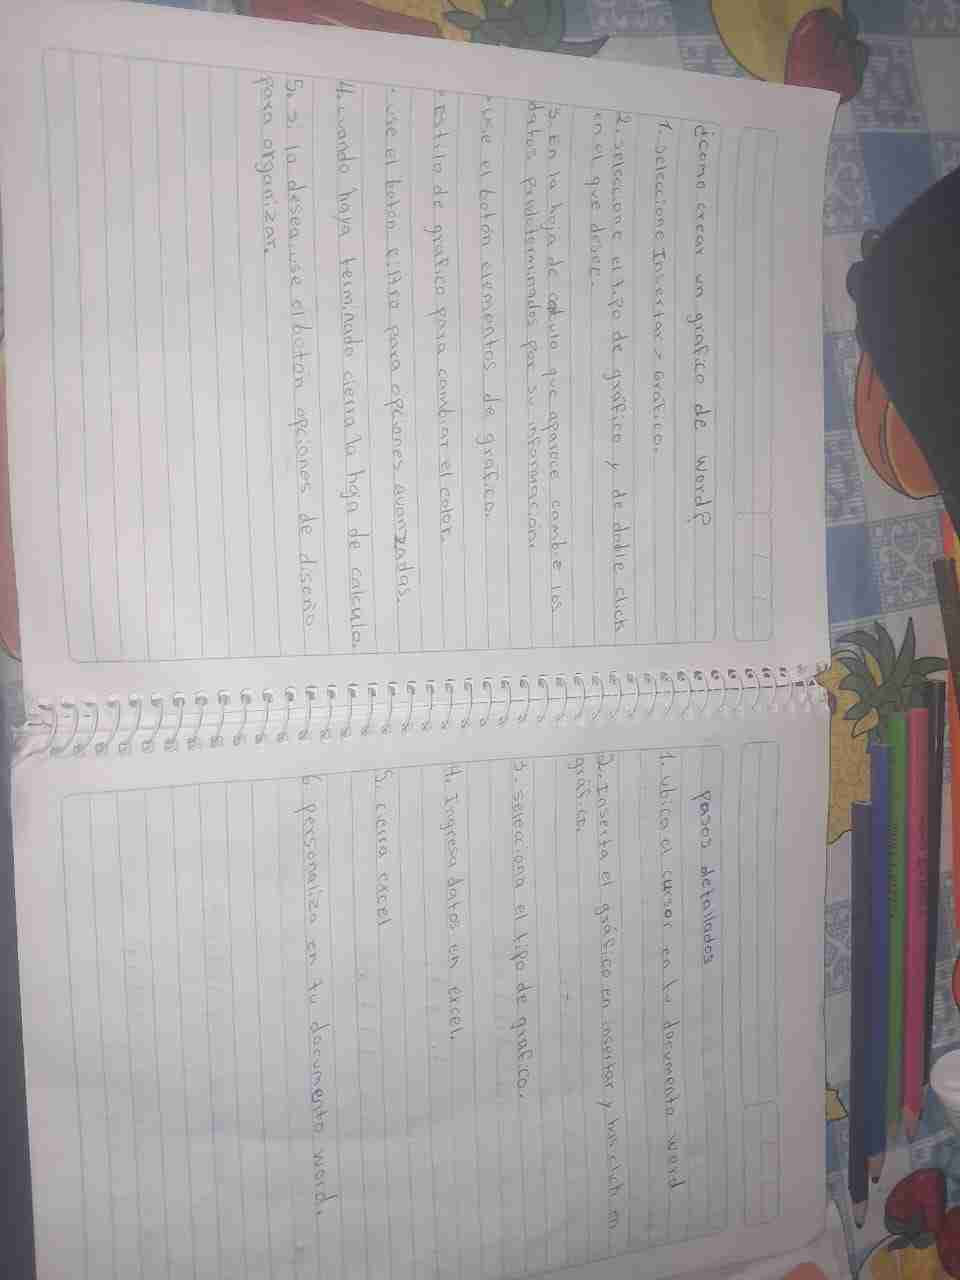 ¿como crear un grafico de word?
1. Seleccione Insertar > Grafico.
2. seleccione el tipo de gráfico y de doble click
en el que desee.
3. En la hoja de calculo que aparece cambie los
datos predeterminados por su información.
• use el botón elementos de grafico.
• Estilo de grafico para cambiar el color.
• use el botón filtro para opciones avanzadas.
4. cuando haya terminado cierra la hoja de calculo.
5. si lo desea, use el botón opciones de diseño
para organizar.
pasos detallados
1. ubica el cursor en tu documento word
2. Inserta el gráfico en insertar y has click en
gráfico.
3. selecciona el tipo de grafico.
4. Ingresa datos en excel.
5. cierra excel
6. personaliza en tu documento word.